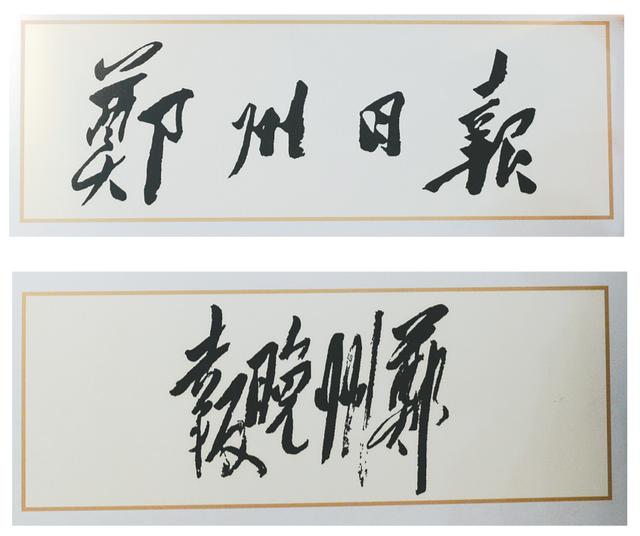 鄭州日報
鄭州晚報